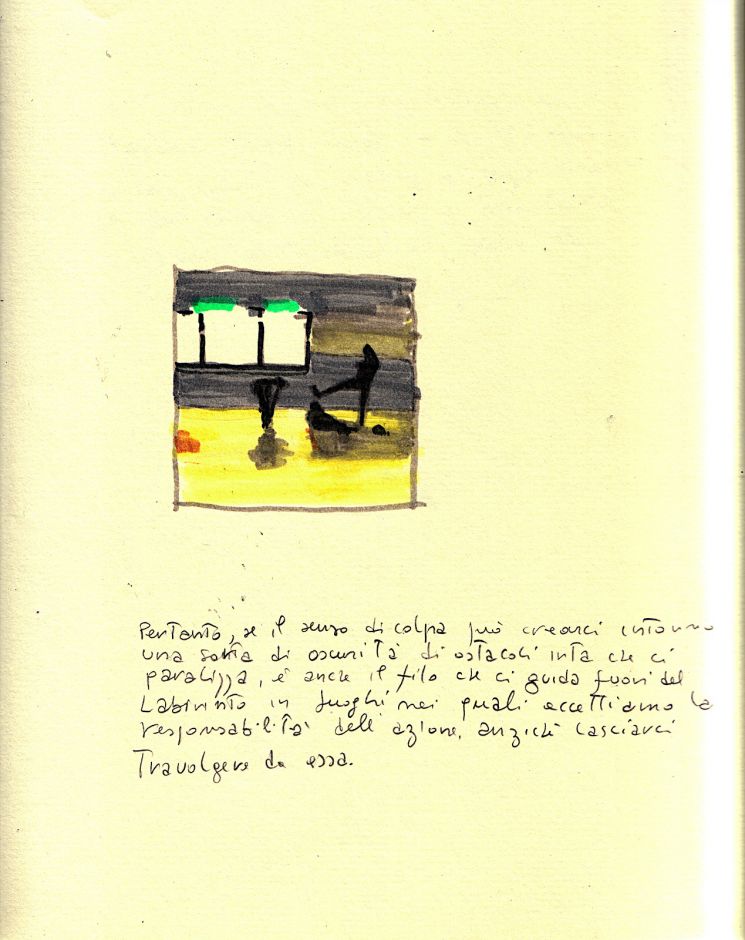 Pertanto, se il senso di colpa può crearci intorno
una sorta di oscurità di ostacoli che ci
paralizza, è anche il filo che ci guida fuori del
Labirinto in luoghi nei quali accettiamo la
responsabilità dell'azione, anziché lasciarci
Travolgere da essa.